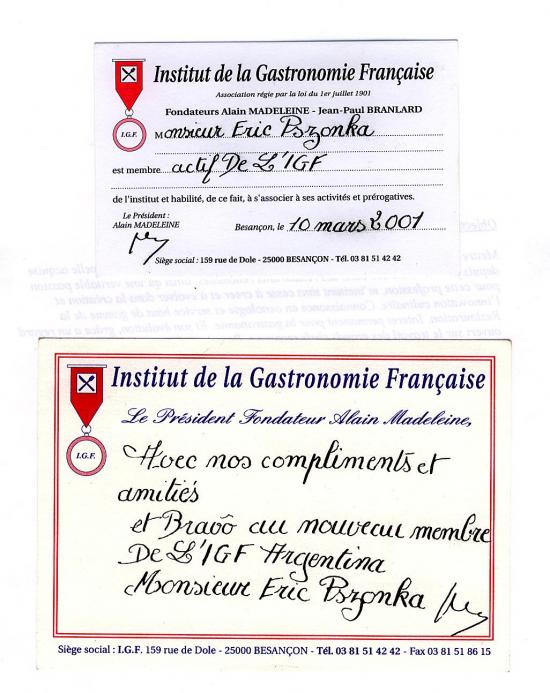 Institut de la Gastronomie Française
Association régie par la loi du 1er juillet 1901
Fondateurs Alain MADELEINE - Jean-Paul BRANLARD
I.G.F.
Monsieur Eric Pszonka
est membre actif De L'IGF
de l'institut et habilité, de ce fait, à s'associer à ses activités et prérogatives.
Le Président :
Alain MADELEINE
Besançon, le 10 mars 2001
Siège social : 159 rue de Dole - 25000 BESANÇON - Tél. 03 81 51 42 42
Institut de la Gastronomie Française
Le Président Fondateur Alain Madeleine,
I.G.F.
Avec nos compliments et
amitiés
et Bravô au nouveau membre
De L'IGF Argentina
Monsieur Eric Pszonka
Siège social : I.G.F. 159 rue de Dole - 25000 BESANÇON - Tél. 03 81 51 42 42 - Fax 03 81 51 86 15